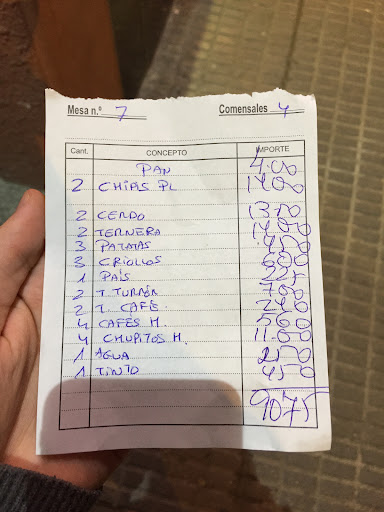 Mesa n.º 7 Comensales 4
Cant. CONCEPTO IMPORTE
PAN 4.00
2 CHIPIS PL 14.00
2 CERDO 13.50
2 TERNERA 14.00
3 PATATAS 4.50
3 CRIOLLOS
1 PAÍS 2.25
2 T. TURRÓN 7.00
2 T. CAFÉ
4 CAFÉS M. 5.60
4 CHUPITOS H.
1 AGUA 2.50
1 TINTO 4.50
90.75